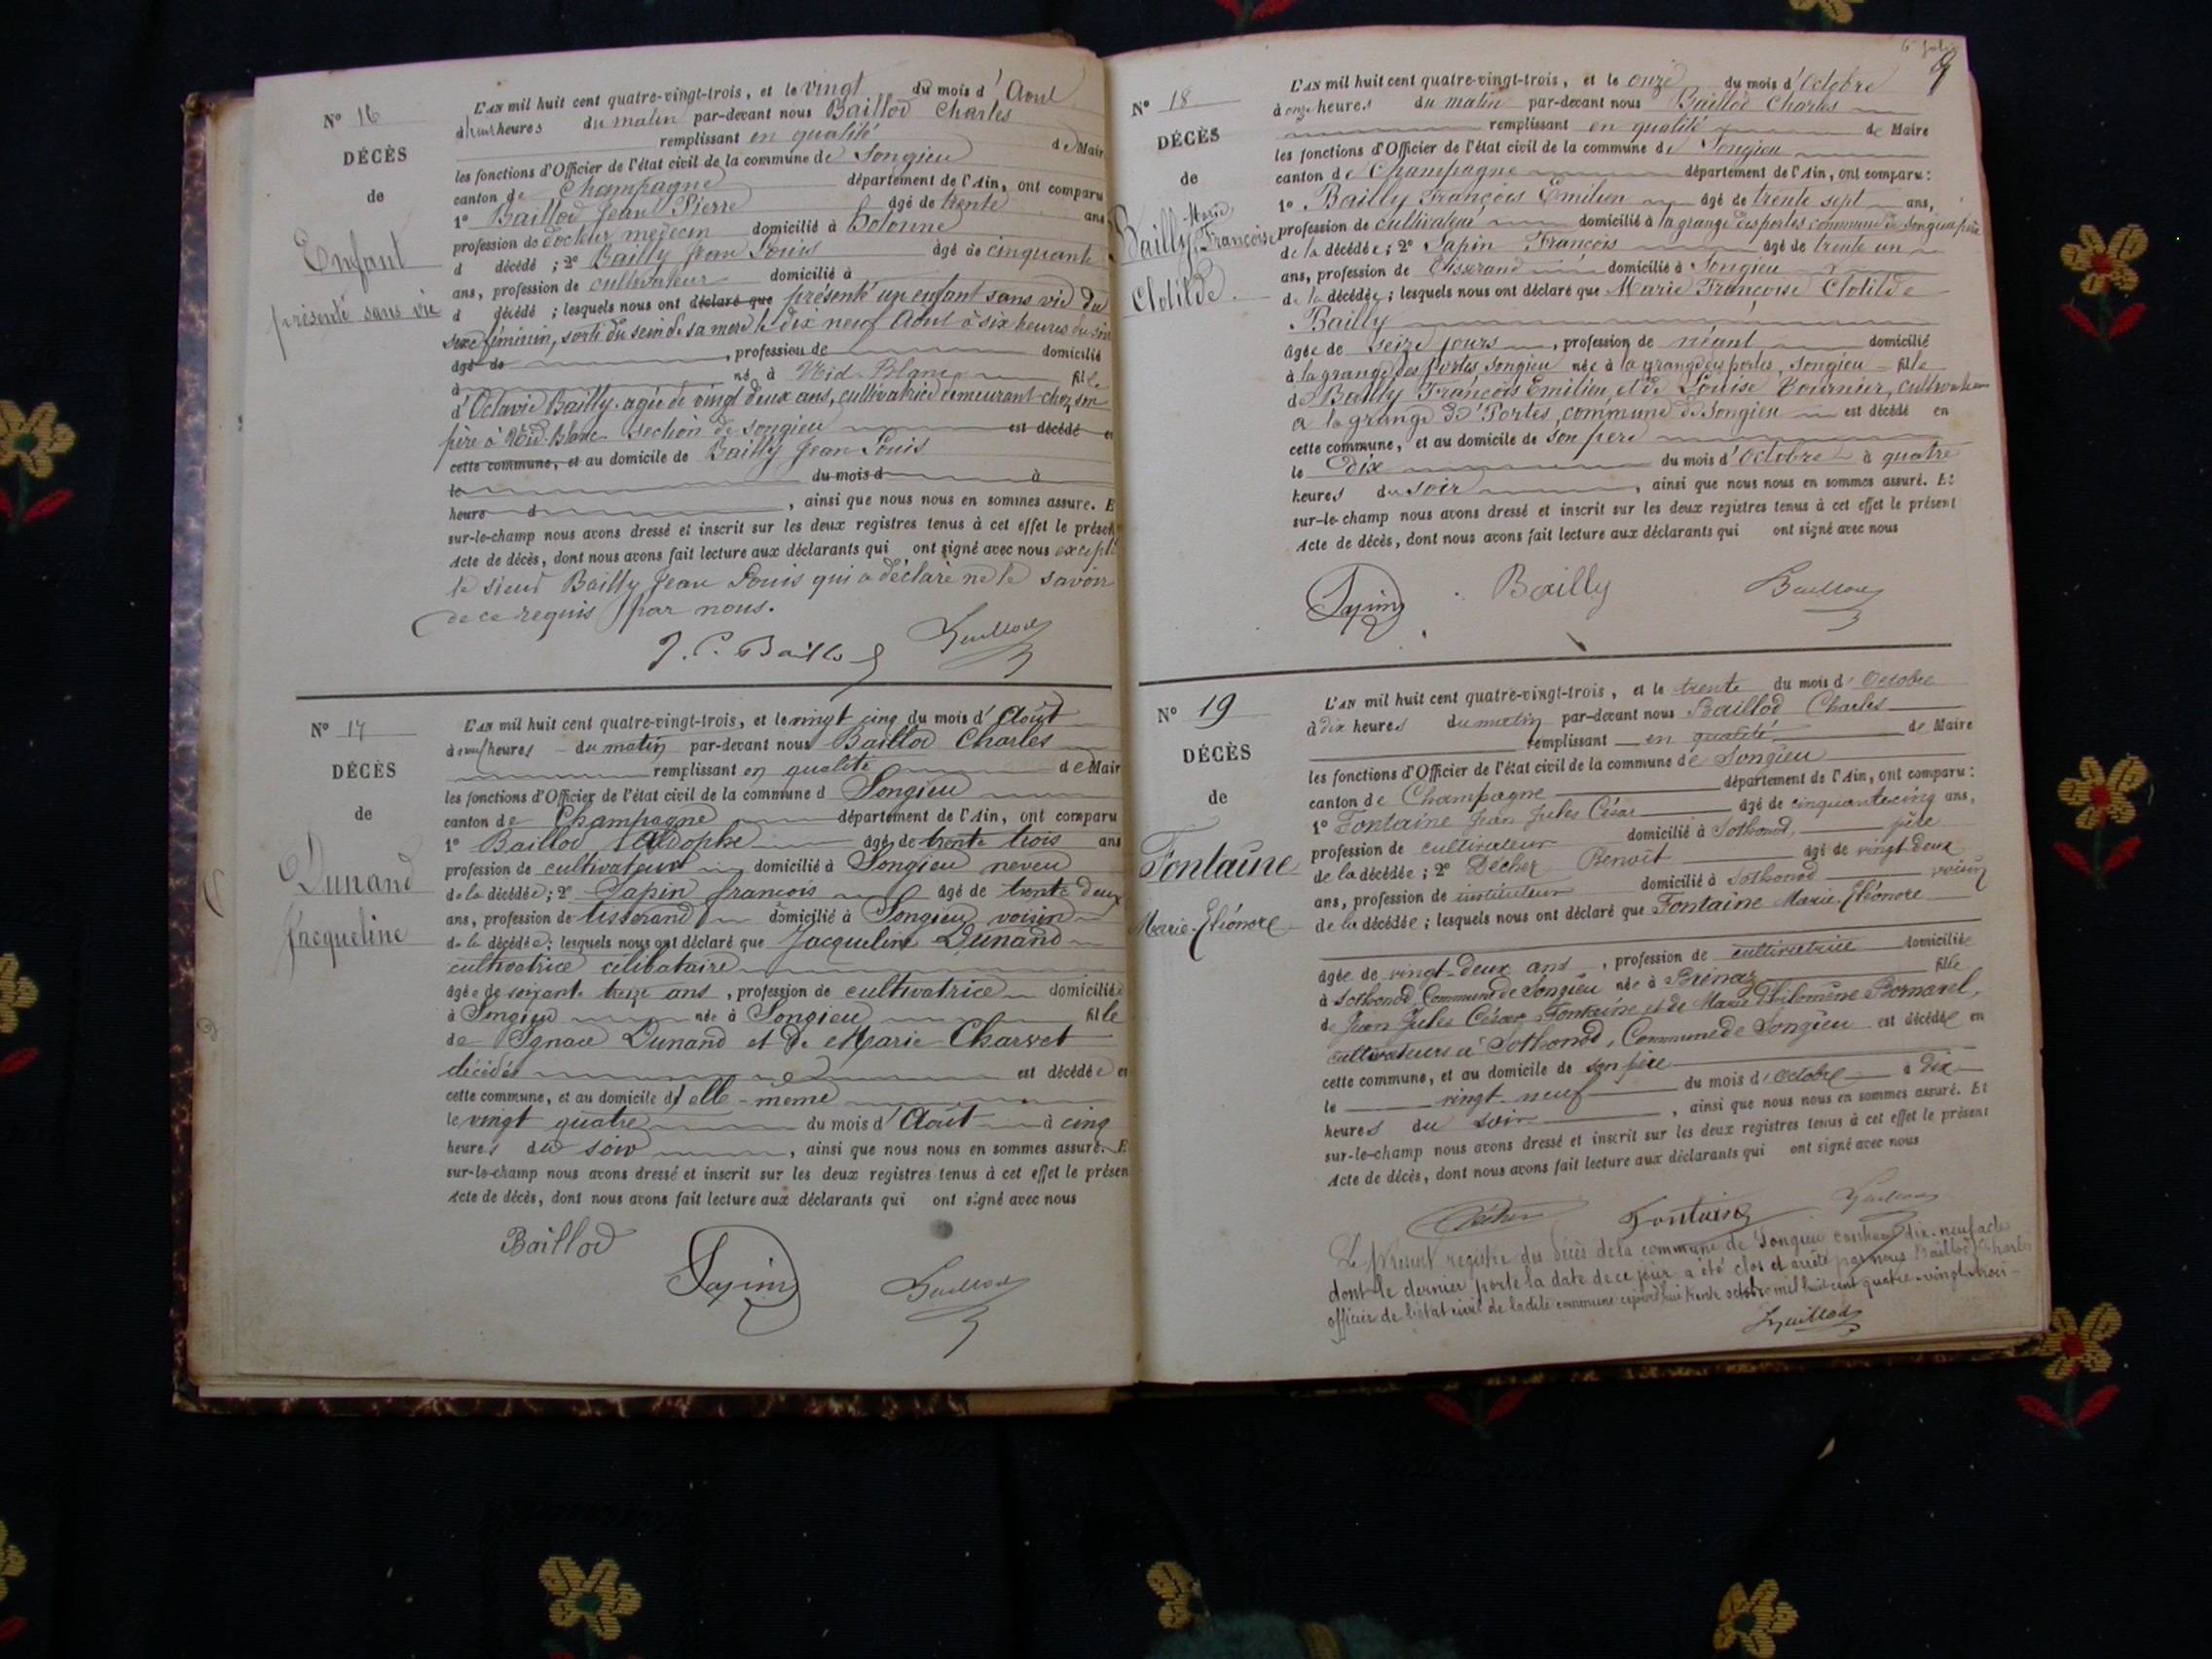 N° 16
DÉCÈS
de
Enfant
présenté sans vie
L'AN mil huit cent quatre-vingt-trois, et le vingt du mois d'Aout
à huit heures du matin par-devant nous Baillod Charles
remplissant en qualité de Mair
les fonctions d'Officier de l'état civil de la commune de Songieu
canton de Champagne département de l'Ain, ont comparu
1° Baillod Jean Pierre âgé de trente ans
profession de docteur médecin domicilié à Hotonne
d décédé ; 2° Bailly Jean Louis âgé de cinquante
ans, profession de cultivateur domicilié à
d décédé ; lesquels nous ont déclaré que présenté un enfant sans vie du
sexe féminin, sorti du sein de sa mère le dix neuf Aout à six heures du soir
âgé de , profession de domicilié
à né à Nid-Blanc fille
d'Octavie Bailly agée de vingt deux ans, cultivatrice demeurant chez son
père à Nid-Blanc section de songieu est décédé en
cette commune, et au domicile de Bailly Jean Louis
le du mois d à
heure d , ainsi que nous nous en sommes assuré. E
sur-le-champ nous avons dressé et inscrit sur les deux registres tenus à cet effet le présen
Acte de décès, dont nous avons fait lecture aux déclarants qui ont signé avec nous excepté
le sieur Bailly Jean Louis qui a déclaré ne le savoir
de ce requis par nous.
J. P. Baillod Baillod
N° 17
DÉCÈS
de
Dunand
Jacqueline
L'AN mil huit cent quatre-vingt-trois, et le vingt cinq du mois d'Août
à neuf heures du matin par-devant nous Baillod Charles
remplissant en qualité de Mair
les fonctions d'Officier de l'état civil de la commune d Songieu
canton de Champagne département de l'Ain, ont comparu
1° Baillod Adolphe âgé de trente trois ans
profession de cultivateur domicilié à Songieu neveu
de la décédée ; 2° Sapin francois âgé de trente deux
ans, profession de tisserand domicilié à Songieu voisin
de la décédée ; lesquels nous ont déclaré que Jacqueline Dunand
cultivatrice célibataire
âgée de soixante treize ans , profession de cultivatrice domiciliée
à Songieu née à Songieu fille
de Ignace Dunand et de Marie Charvet
décédés est décédée en
cette commune, et au domicile d'elle-même
le vingt quatre du mois d'Août à cinq
heures du soir , ainsi que nous nous en sommes assuré. E
sur-le-champ nous avons dressé et inscrit sur les deux registres tenus à cet effet le présen
Acte de décès, dont nous avons fait lecture aux déclarants qui ont signé avec nous
Baillod Sapin Baillod
N° 18
DÉCÈS
de
Bailly Marie
Françoise
Clotilde
L'AN mil huit cent quatre-vingt-trois, et le onze du mois d'Octobre
à onze heures du matin par-devant nous Baillod Charles
remplissant en qualité de Maire
les fonctions d'Officier de l'état civil de la commune de Songieu
canton de Champagne département de l'Ain, ont comparu :
1° Bailly François Emilien âgé de trente sept ans,
profession de cultivateur domicilié à la grange des portes commune de Songieu père
de la décédée ; 2° Sapin François âgé de trente un
ans, profession de Tisserand domicilié à Songieu
de la décédée ; lesquels nous ont déclaré que Marie Françoise Clotilde
Bailly
âgée de seize jours , profession de néant domicilié
à la grange des Portes Songieu née à la grange des portes Songieu fille
de Bailly François Emilien et de Louise Tournier, cultivateurs
à la grange des Portes, commune de Songieu est décédé en
cette commune, et au domicile de son père
le dix du mois d'Octobre à quatre
heures du soir , ainsi que nous nous en sommes assuré. Et
sur-le-champ nous avons dressé et inscrit sur les deux registres tenus à cet effet le présent
Acte de décès, dont nous avons fait lecture aux déclarants qui ont signé avec nous
Sapin Bailly Baillod
N° 19
DÉCÈS
de
Fontaine
Marie-Eléonore
L'AN mil huit cent quatre-vingt-trois, et le trente du mois d'Octobre
à dix heures du matin par-devant nous Baillod Charles
remplissant en qualité de Maire
les fonctions d'Officier de l'état civil de la commune de Songieu
canton de Champagne département de l'Ain, ont comparu :
1° Fontaine Jean Jules César âgé de cinquante cinq ans,
profession de cultivateur domicilié à Sothonod, père
de la décédée ; 2° Décher Benoît âgé de vingt-deux
ans, profession de instituteur domicilié à Sothonod voisin
de la décédée ; lesquels nous ont déclaré que Fontaine Marie-Eléonore
âgée de vingt-deux ans , profession de cultivatrice domiciliée
à Sothonod, Commune de Songieu née à Brénaz fille
de Jean Jules César Fontaine et de Marie Philomène Bornarel,
cultivateurs à Sothonod, Commune de Songieu est décédée en
cette commune, et au domicile de son père
le vingt-neuf du mois d'Octobre à dix
heures du soir , ainsi que nous nous en sommes assuré. Et
sur-le-champ nous avons dressé et inscrit sur les deux registres tenus à cet effet le présent
Acte de décès, dont nous avons fait lecture aux déclarants qui ont signé avec nous
Décher Fontaine Baillod
Le présent registre des décès de la commune de Songieu contenant dix-neuf actes
dont le dernier porte la date de ce jour a été clos et arrêté par nous Baillod Charles
officier de l'état civil de ladite commune cejourd'hui trente octobre mil huit cent quatre-vingt-trois
Baillod